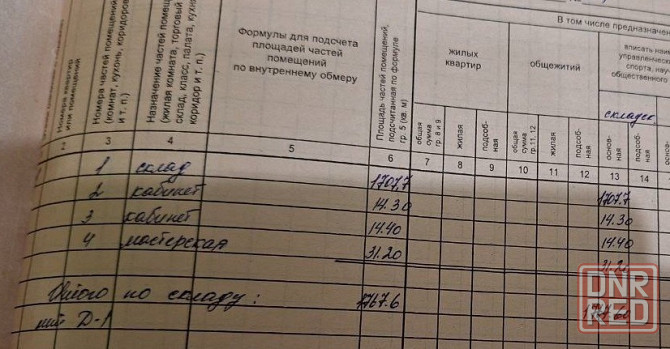 В том числе предназначен
Номера квартир или помещений
Номера частей помещений (комнат, кухонь, коридоров и т. п.)
Назначение частей помещ (жилая комната, торговый склад, класс, палата, кухн коридор и т. п.)
Формулы для подсчета
площадей частей
помещений
по внутреннему обмеру
Площадь частей помещений, подсчитанная по формуле гр. 5 (кв. м)
жилых
квартир
общежитий
вписать но
управленческ
спорта, нау
общественного
складск
общая сумма гр. 8 и 9
жилая
подсоб-ная
общая сумма гр. 11, 12
жилая
подсоб-ная
основ-ная
подсоб-ная
2 3 4 5 6 7 8 9 10 11 12 13 14
1 склад 1707.7 1707.7
2 кабинет 14.30 14.30
3 кабинет 14.40 14.40
4 мастерская 31.20 31.2
Итого по складу: 1767.6
лит Д-1
DNR